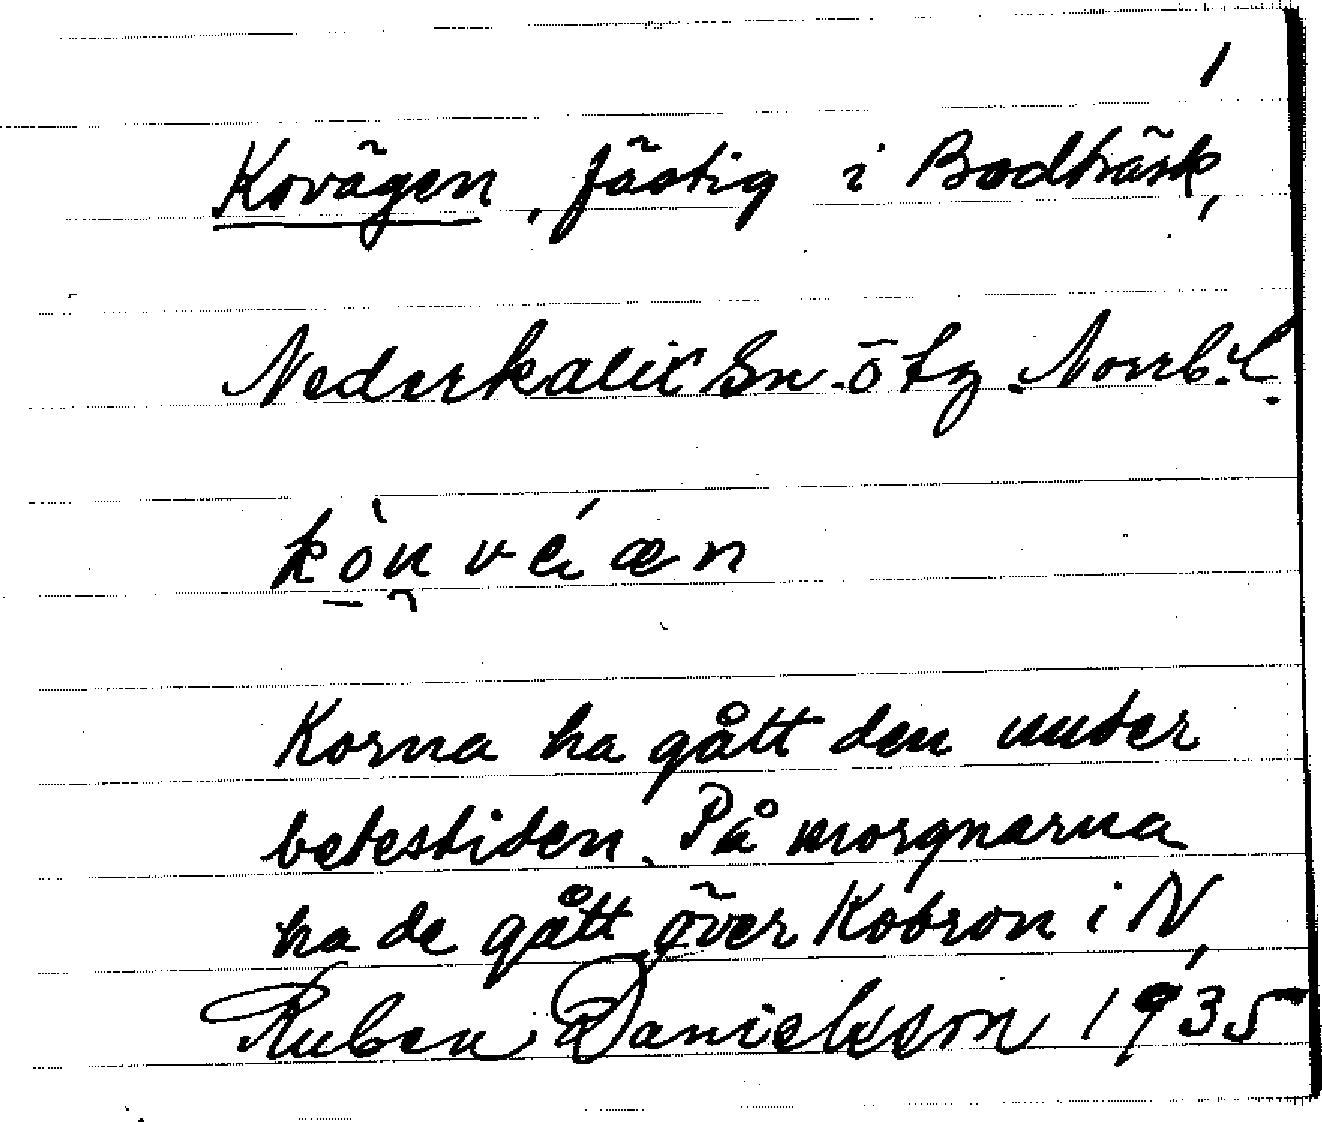 1
Kovägen, fästig i Bodträsk,
Nederkalix Sn. ö tg. Norrb. l.
Korna ha gått den under
betestiden. På morgnarna
ha de gått över Kobron i N,
Ruben Danielsson 1935